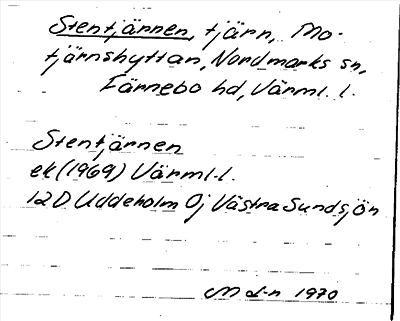 Stentjärnen, tjärn, Mo-
tjärnshyttan, Nordmarks sn,
Färnebo hd, Värml. l.
Stentjärnen
ek (1969) Värml. l.
12D Uddeholm 0j Västra Sundsjön
M L-n 1970